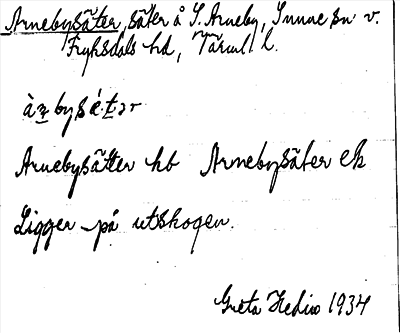 Arnebysäter, säter å S. Arneby, Sunne sn v.
Fryksdals hd, Värml. l.
Arnebysätter hb Arnebysäter ek
Ligger på utskogen.
Greta Hedin 1934